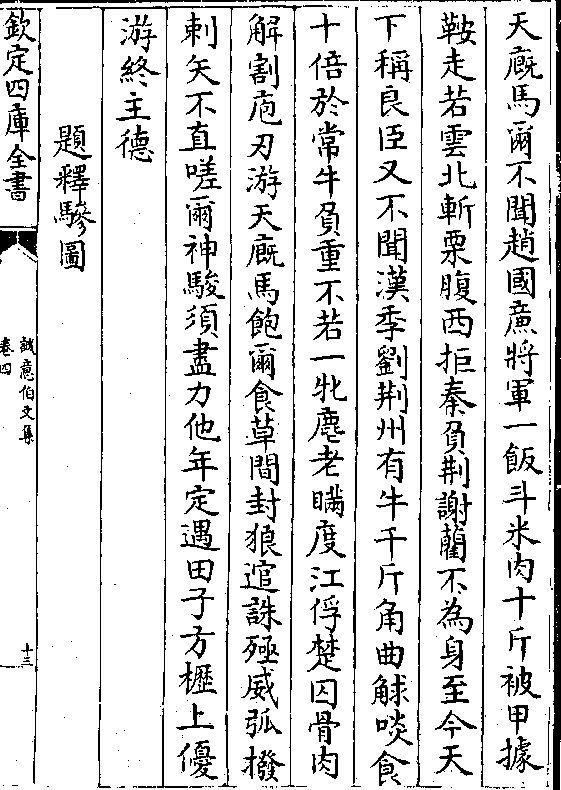 天廐馬爾不聞趙國廉將軍一飯斗米肉十斤被甲據
鞍走若雲北斬栗腹西拒秦負荆謝藺不為身至今天
下稱良臣又不聞漢季劉荆州有牛千斤角曲觩啖食
十倍於常牛負重不若一牝麀老瞞度江俘楚囚骨肉
解割庖刃游天廐馬飽爾食草間封狼逭誅殛威弧撥
剌矢不直嗟爾神駿須盡力他年定遇田子方櫪上優
游終主德
題釋驂圖
欽定四庫全書
誠意伯文集
卷四
十三